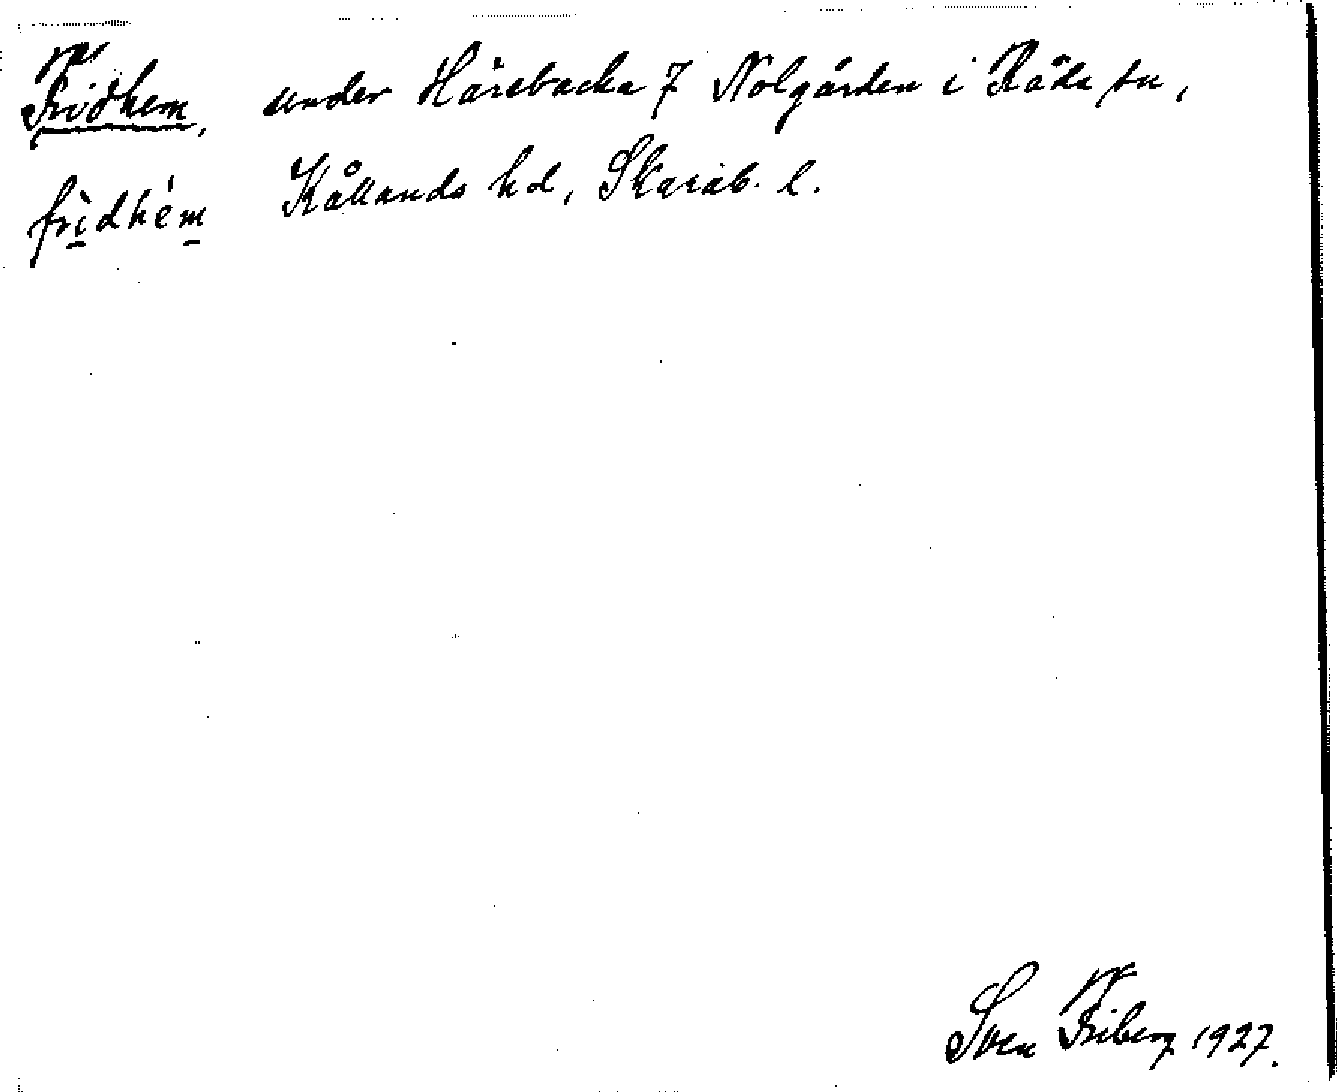 Fridhem, under Häresbacka 7 Nolgården i Råda sn,
fridhém Kållands hd, Skarab. l.
Sven Friberg 1927.